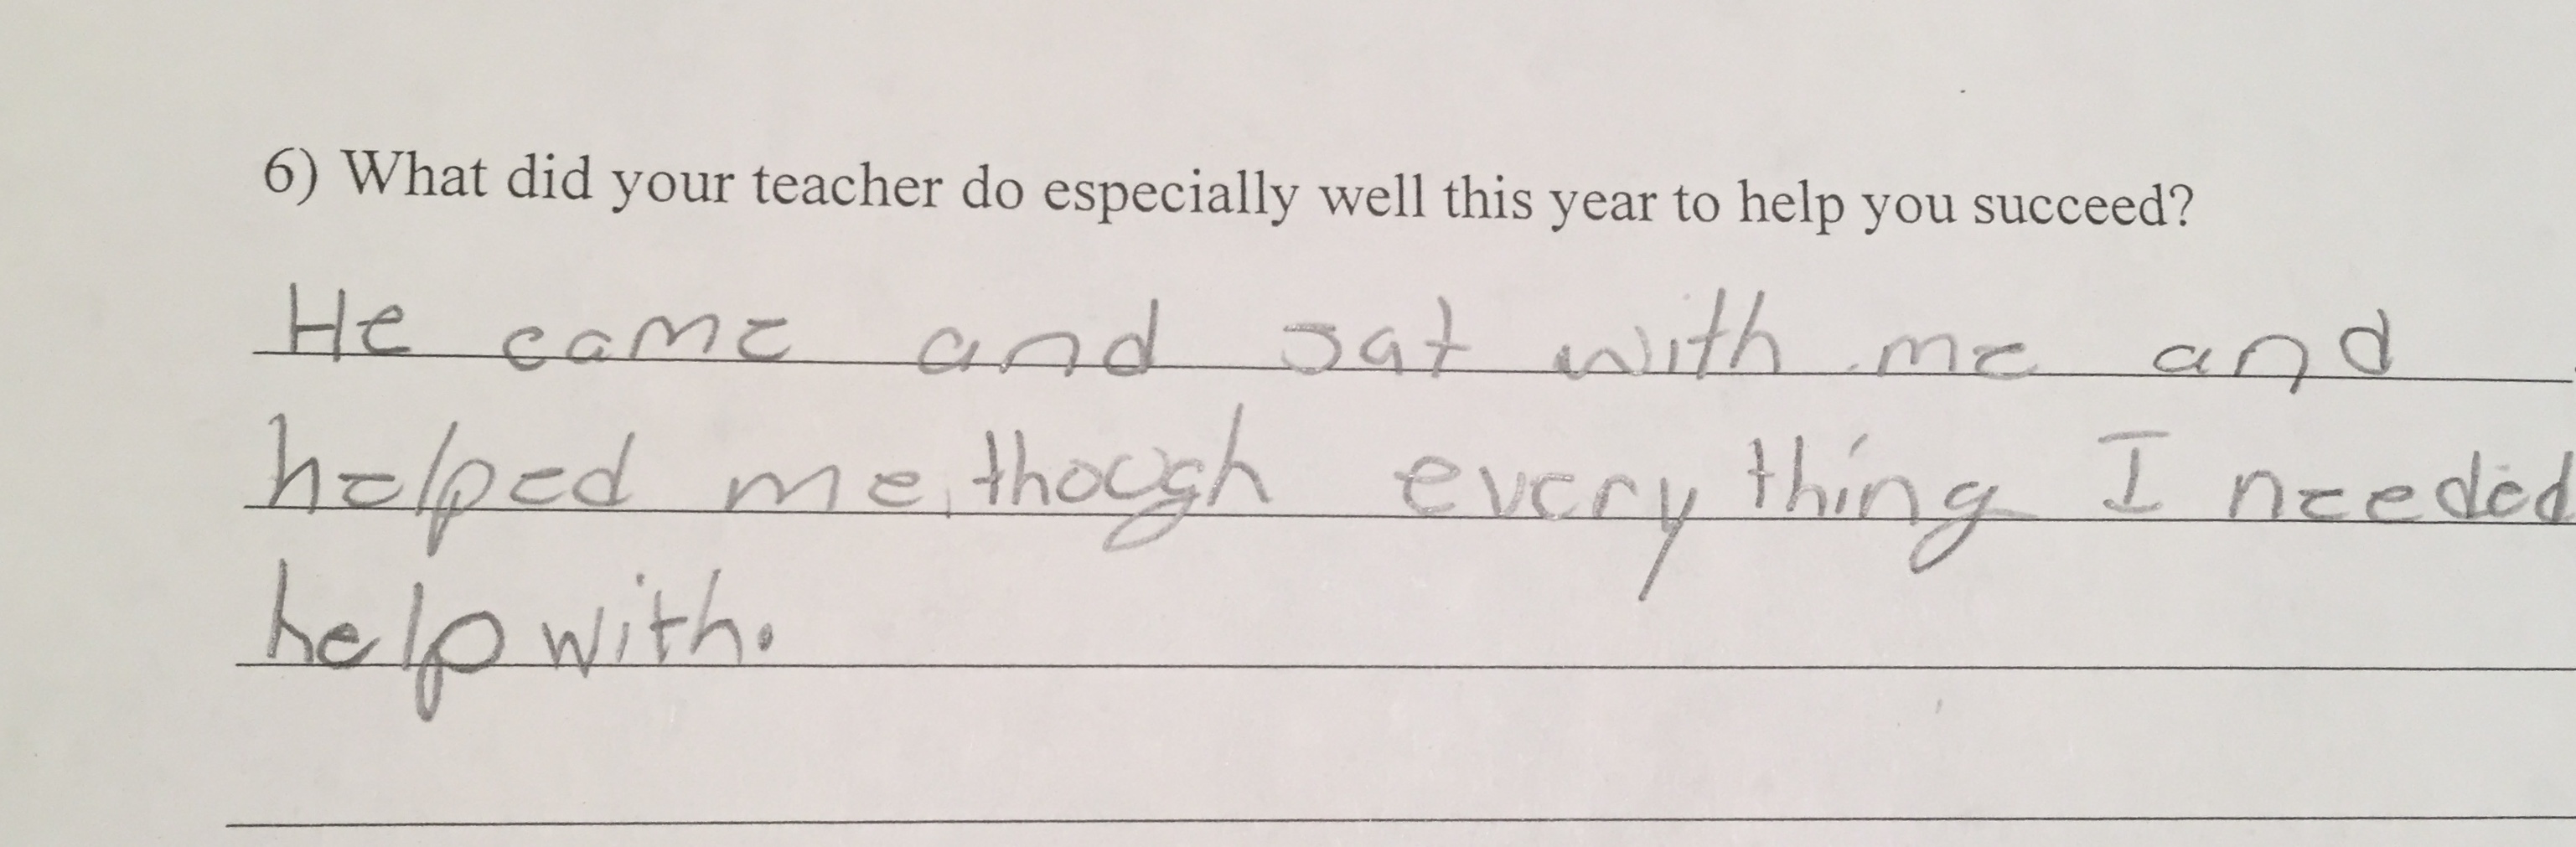 6) What did your teacher do especially well this year to help you succeed?
He came and sat with me and
helped me, though every thing I needed
help with.